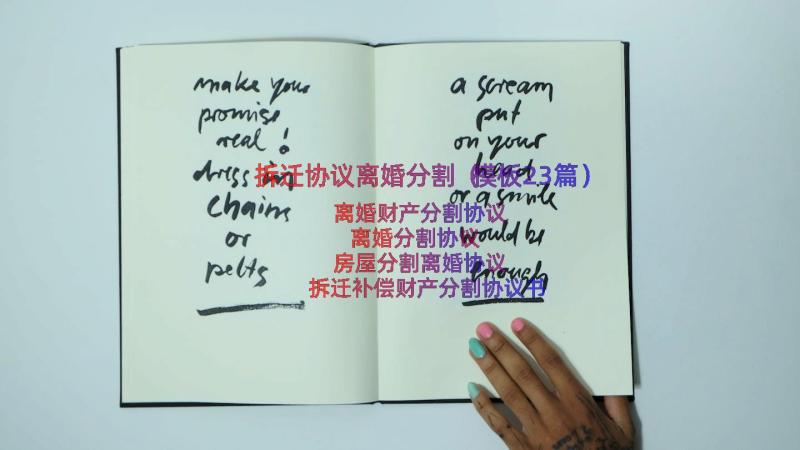 make your
promise
real!
dress in
chains
or
pelts
a scream
put
on your
head
or a smile
would be
enough
拆迁协议离婚分割（模板23篇）
离婚财产分割协议
离婚分割协议
房屋分割离婚协议
拆迁补偿财产分割协议书